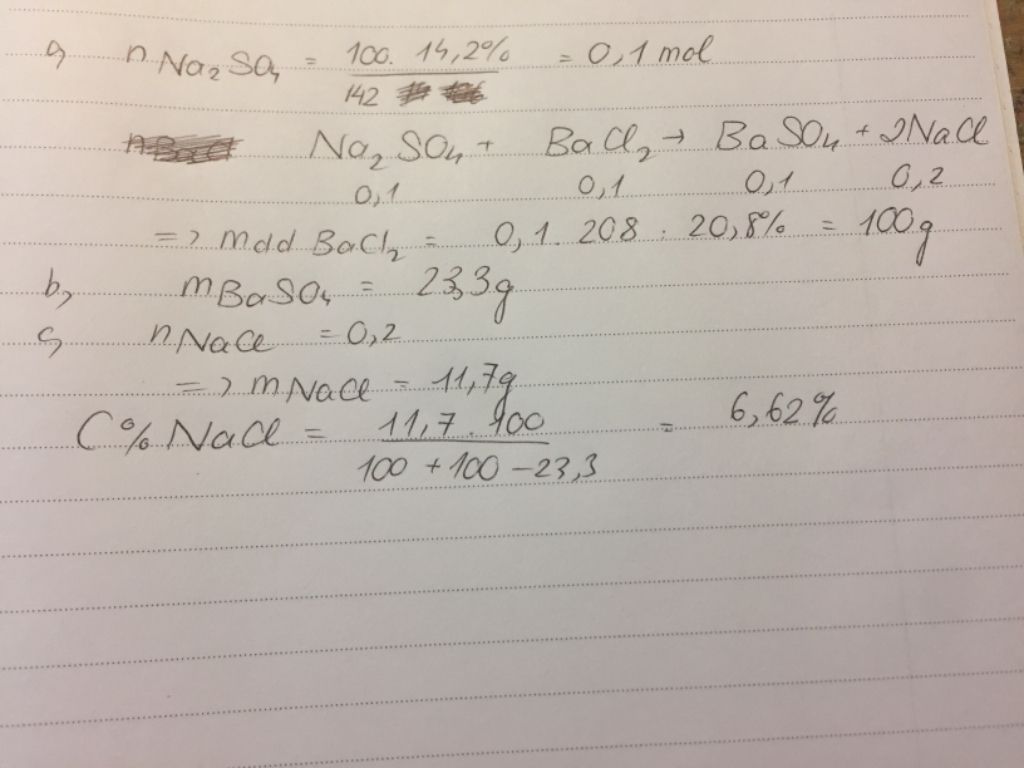 a, nNa₂SO₄ = 100. 14,2% / 142 = 0,1 mol
Na₂SO₄ + BaCl₂ → BaSO₄ + 2NaCl
0,1 0,1 0,1 0,2
=> mdd BaCl₂ = 0,1 . 208 : 20,8% = 100g
b, mBaSO₄ = 23,3g
c, nNaCl = 0,2
=> mNaCl = 11,7g
C% NaCl = 11,7 . 100 / 100 + 100 - 23,3 = 6,62%